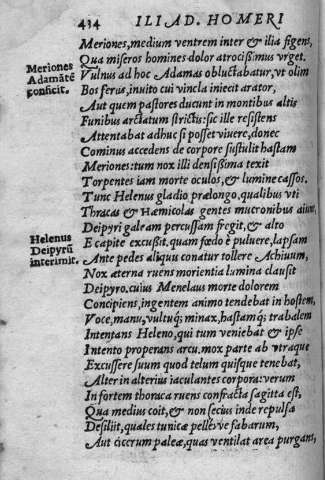 434 ILIAD. HOMERI
Meriones, medium ventrem inter & ilia figens,
Qua miseros homines dolor atrocißimus vrget.
Meriones
Adamātē
conficit.
Vulnus ad hoc Adamas obluctabatur, vt olim
Bos ferus, inuito cui vincla iniecit arator,
Aut quem pastores ducunt in montibus altis
Funibus arctatum strictis: sic ille resistens
Attentabat adhuc si posset viuere, donec
Cominus accedens de corpore sustulit hastam
Meriones: tum nox illi densißima texit
Torpentes iam morte oculos, & lumine cassos.
Tunc Helenus gladio prælongo, qualibus vti
Thracas & Hæmicolas gentes mucronibus aiunt,
Deipyri galeam percussam fregit, & alto
Helenus
Deipyrū
interimit.
E capite excußit, quam fœdo è puluere, lapsam
Ante pedes aliquu conatur tollere Achiuum,
Nox æterna ruens morientia lumina clausit
Deipyro, cuius Menelaus morte dolorem
Concipiens, ingentem animo tendebat in hostem,
Voce, manu, vultuq; minax, hastamq; trabalem
Intentans Heleno, qui tum veniebat & ipse
Intento properans arcu, mox parte ab vtraque
Excussere suum quod telum quisque tenebat,
Alter in alterius iaculantes corpora: verum
In fortem thoraca ruens confracta sagitta est,
Qua medius coit, & non secius inde repulsa
Desiliit, quales tunicæ pelleve fabarum,
Aut cicerum paleæ, quas ventilat area purgans,